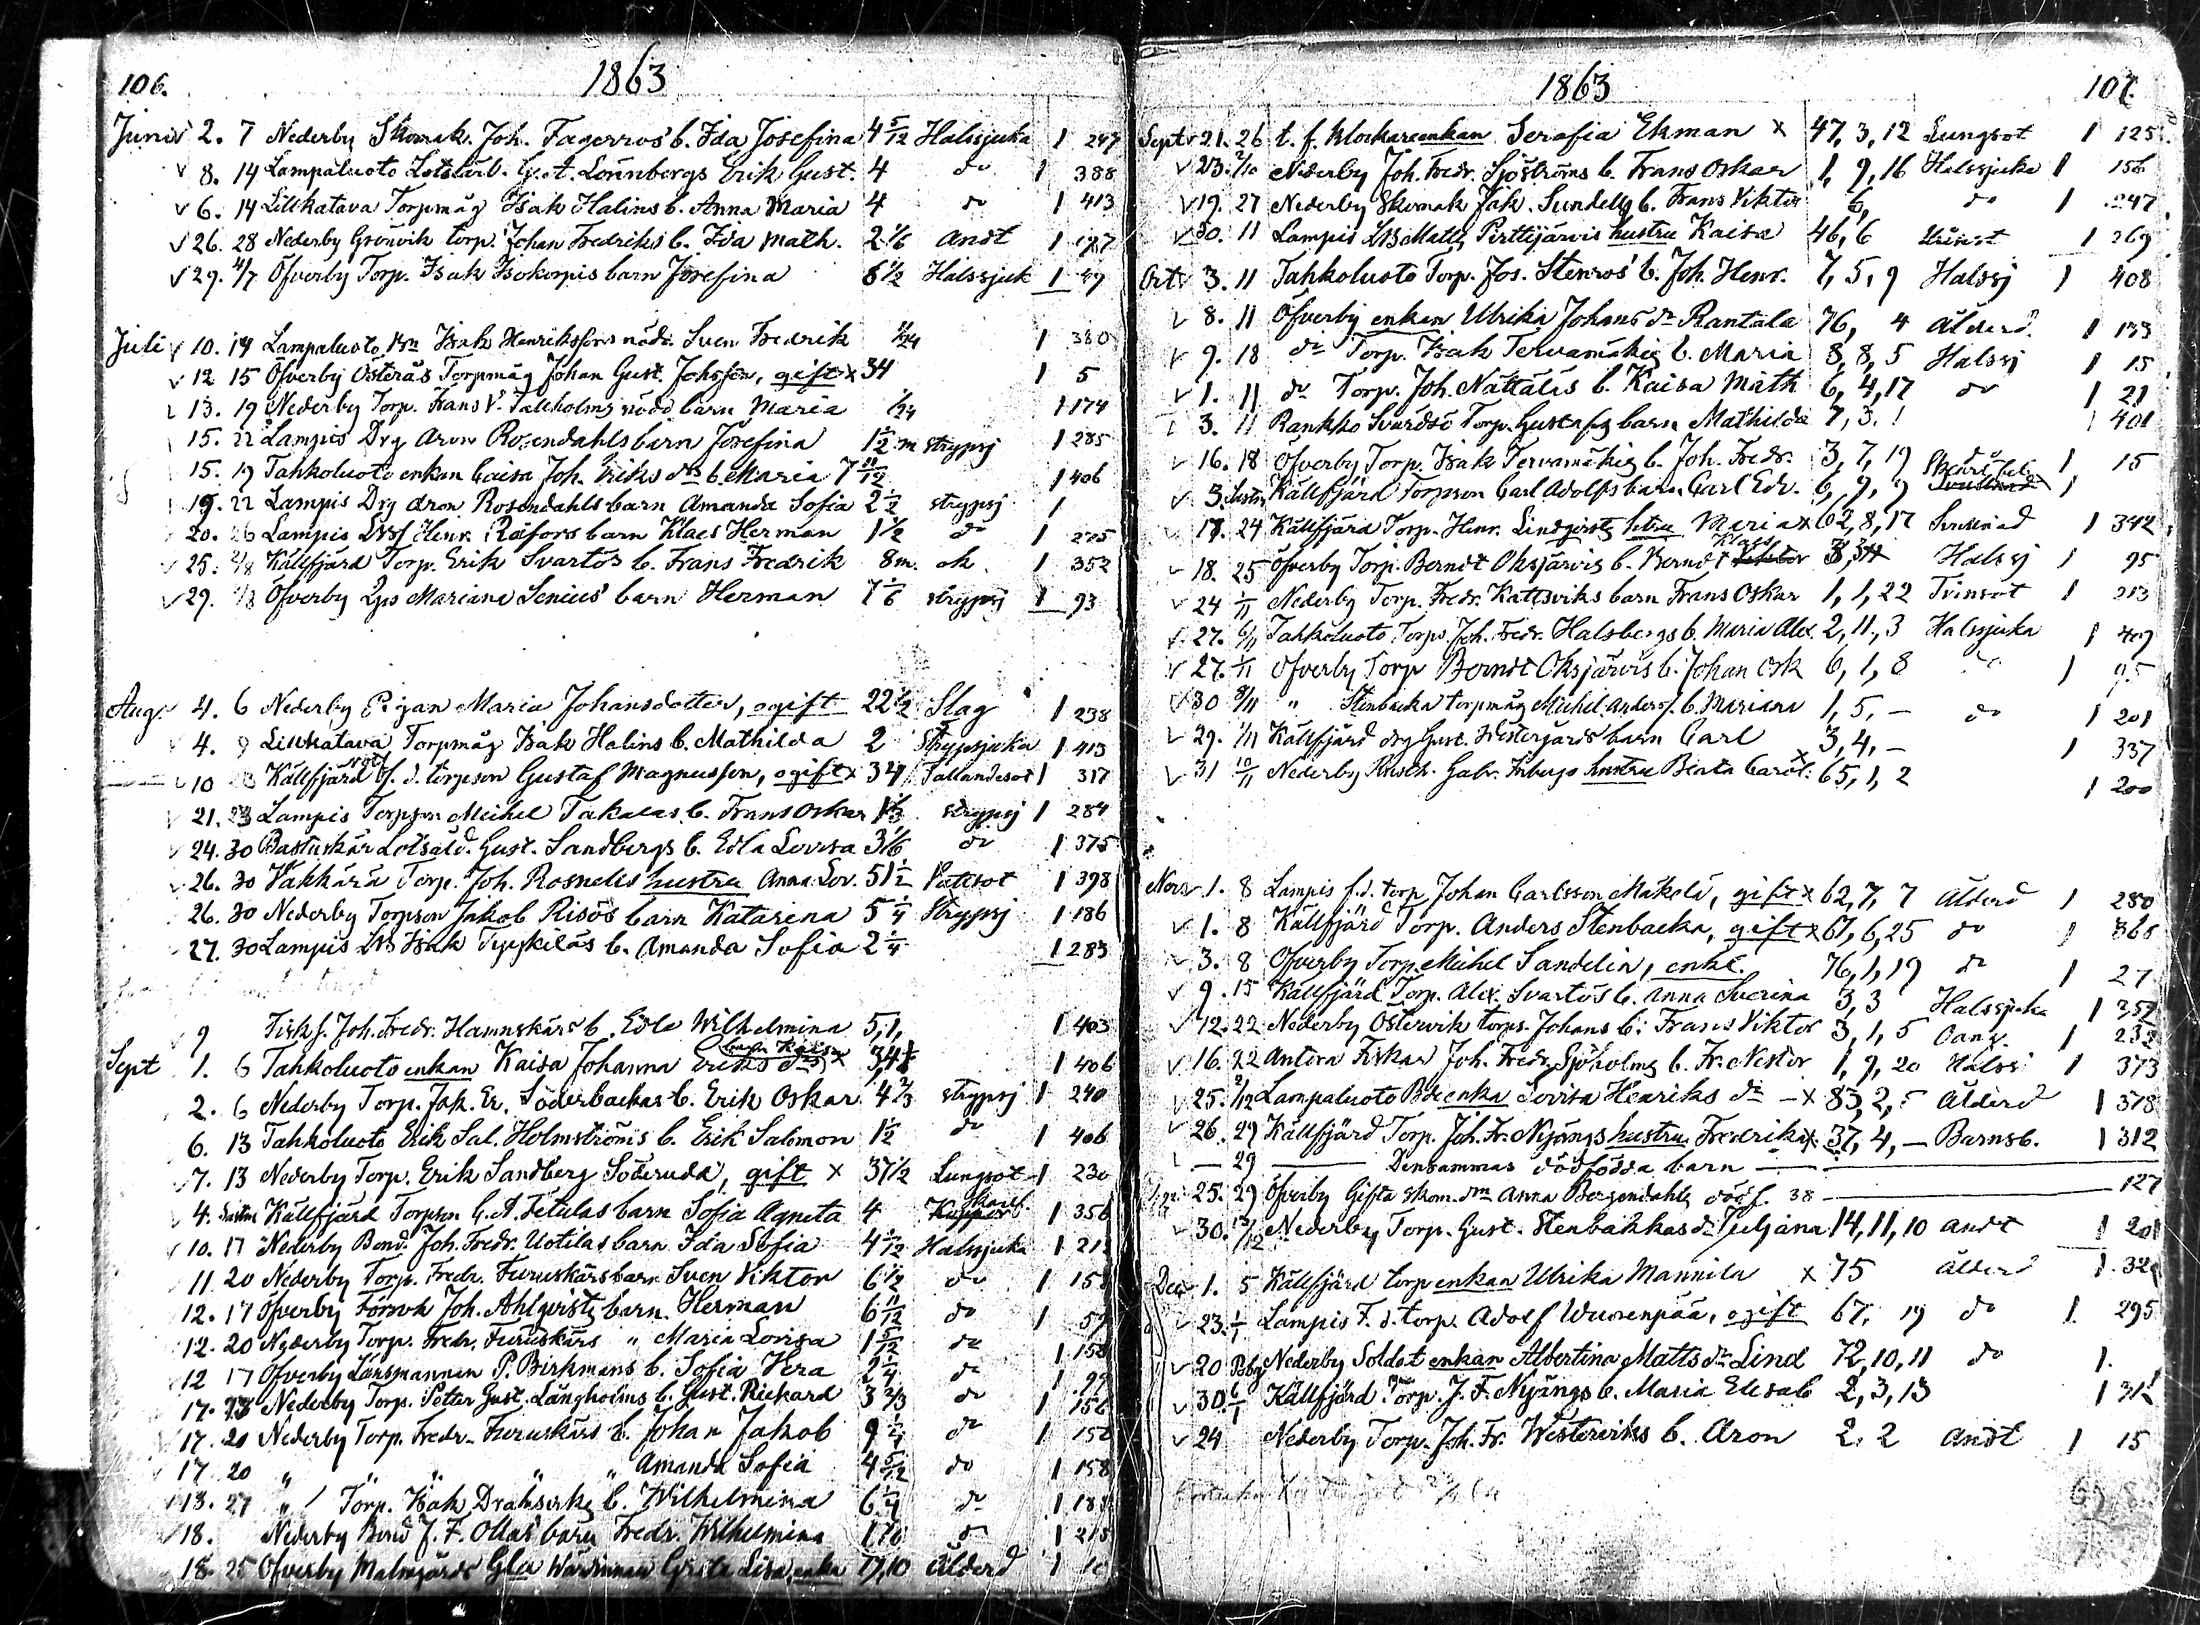 106.
1863
Junii 2. 7 Nederby Skomak. Joh. Fagerros' b. Ida Josefina 4 5/12 Halssjuka 1 247
8. 14 Lampaluoto Gust. Lönnbergs Erik Gust. 4 do 1 388
6. 14 Lillkatava Torpmåg Isak Halins b. Anna Maria 4 do 1 413
26. 28 Nederby Grönvik torp. Johan Fredriks b. Ida Math. 2 1/6 Andt 1
29. 4/7 Öfverby Torp. Isak barn Josefina 6 1/2 Halssjuk 1 49
Juli 10. 19 Lampaluoto Isak Henrikssons nödd. Sven Fredrik 1/24 1 380
12 15 Öfverby Österås Torpmåg Johan Gust. Johsson, gift x 34 1 5
13. 19 Nederby Torp. Frans V. Tallholms nödd barn Maria 1/24 1 174
15. 22 Lampis Drg Aron Rosendahls barn Josefina 1 1/2 m strypsj 1 285
15. 19 Tahkoluoto enkan Caisa Joh. Eriks dr b. Maria 7 10/12 1 406
19. 22 Lampis Drg Aron Rosendahls barn Amanda Sofia 2 1/2 strypsj 1
20. 26 Lampis Henr. Råfors barn Klaes Herman 1 1/2 do 1
25. 2/8 Källfjärd Torp. Erik Svartös b. Frans Fredrik 8 m. ok 1 352
29. Öfverby Mariana Senius' barn Herman 7 1/6 strypsj 1 93
Aug. 4. 6 Nederby Pigan Maria Johansdotter, ogift 22 1/2 Slag 1 238
4. 9 Lillkatava Torpmåg Isak Halins b. Mathilda 2 Strypsjuka 1 413
10 23 Källfjärd f. d. torpson Gustaf Magnusson, ogift x 34 Fallandesot 1 317
21. 23 Lampis Torpson Michel Takalas b. Frans Oskar 1 1/3 strypsj 1 284
24. 30 Bastuskär Lotsåld. Gust. Sandbergs b. Edla Lovisa 3 1/6 do 1 375
26. 30 Väkkärä Torp. Joh. Rosnells hustru Anna Lov. 51 1/2 Vattsot 1 398
26. 30 Nederby Torpson Jakob Risös barn Katarina 5 1/4 Strypsj 1 186
27. 30 Lampis Isak b. Amanda Sofia 2 1/4 1 283
9 Fisk f. Joh. Fredr. Hamnskärs b. Edla Wilhelmina 5,1, 1 403
Sept 1. 6 Tahkoluoto enkan Kaisa Johanna Eriks dr x 34 1 406
2. 6 Nederby Torp. Jak. Er. Söderbackas b. Erik Oskar 4 2/3 strypsj 1 240
6. 13 Tahkoluoto Erik Sal. Holmströms b. Erik Salomon 1 1/2 do 1 406
7. 13 Nederby Torp. Erik Sandberg Söderudd, gift x 37 1/2 Lungsot 1 230
4. Källfjärd Torpson C. A. Fetulas barn Sofia Agneta 4 1 356
10. 17 Nederby Bond. Joh. Fredr. Uotilas barn Ida Sofia 4 5/12 Halssjuka 1 213
11 20 Nederby Torp. Fredr. Furuskärs barn Sven Viktor 6 1/2 do 1 158
12. 17 Öfverby Joh. Ahlqvists barn Herman 6 11/12 do 1
12. 20 Nederby Torp. Fredr. Furuskärs " Maria Lovisa 1 5/12 do 1 158
12 17 Öfverby Länsmannen P. Birkmans b. Sofia Vera 2 1/4 do 1
17. 23 Nederby Torp. Peter Gust. Långholms b. Gust. Rickard 3 2/3 do 1 156
17. 20 Nederby Torp. Fredr. Furuskärs b. Johan Jakob 9 1/4 do 1 158
17. 20 " " " " " Amanda Sofia 4 5/12 do 1 158
13. 27 " Torp. Isak b. Wilhelmina 6 1/4 do 1
18. Nederby Bond J. F. Ollas' barn Fredr. Wilhelmina do 1 215
18. 25 Öfverby Malmgårds Greta Lisa, enka 79,10 Ålderd 1
1863
107.
Sept 21. 26 t. f. klockareenkan Serafia Ekman x 47, 3, 12 Lungsot 1 125
23. 2/10 Nederby Joh. Fredr. Sjöströms b. Frans Oskar 1, 9, 16 Halssjuka 1 156
19. 27 Nederby Skomak Jak. Sundells b. Frans Viktor 6, do 1 247
30. 11 Lampis Matts Perttijärvis hustru Kaisa 46, 6 1 269
Oct 3. 11 Tahkoluoto Torp. Jos. Stenros' b. Joh. Henr. 7, 5, 9 Halssj 1 408
8. 11 Öfverby enkan Ulrika Johans dr Rantala 76, 4 Ålderd. 1 133
9. 18 do Torp. Isak Tervamäkis b. Maria 8, 8, 5 Halssj 1 15
1. 11 do Torp. Joh. Nättäläs b. Kaisa Math 6, 4, 17 do 1 21
3. 11 Rankko Svärdsö Torp. Gustafs barn Mathilda 7, 3. 1 401
16. 18 Öfverby Torp. Isak Tervamäkis b. Joh. Fredr. 3, 7, 19 do 1 15
3. Källfjärd Torpson Carl Adolfs barn Carl Edv. 6, 9, 9 1
17. 24 Källfjärd Torp. Henr. Lindqvists hstru Maria x 62, 8, 17 1 342
18. 25 Öfverby Torp. Berndt Oksjärvis b. Berndt Klaes Halssj 1 95
24 1/11 Nederby Torp. Fredr. Kattsviks barn Frans Oskar 1, 1, 22 Tvinsot 1 213
27. 6/11 Tahkoluoto Torps. Joh. Fredr. Halsbergs b. Maria Alex. 2, 11, 3 Halssjuka 1 409
27. 1/11 Öfverby Torp Berndt Oksjärvis b. Johan Osk 6, 1, 8 do 1 95
30 8/11 " Stenbacka torpmåg Michel Anderss. b. Mariana 1, 5, — do 1 201
29. 1/11 Källfjärd drg Gust. Westergårds barn Carl 3, 4, — 1 337
31 10/11 Nederby Gabr. hustru Beata Carol. x 65, 1, 2 1 200
Novr 1. 8 Lampis f. d. torp Johan Carlsson Mäkelä, gift x 62, 7, 7 Ålderd 1 280
1. 8 Källfjärd Torp. Anders Stenbacka, gift x 67, 6, 25 do 1 368
3. 8 Öfverby Torp. Michel Sandelin, enkl. 76, 1, 19 do 1 27
9. 15 Källfjärd Torp. Alex. Svartös b. Anna Severina 3, 3 Halssjuka 1 352
12. 22 Nederby Östervik torps. Johans b. Frans Viktor 3, 1, 5 1 232
16. 22 Antora Fiskar Joh. Fredr. Sjöholms b. Fr. Nestor 1, 9, 20 Halss 1 373
25. 2/12 Lampaluoto enka Lovisa Henriks dr — x 83, 2, 5 Ålderd 1 378
26. 29 Källfjärd Torp. Joh. Fr. Nyängs hustru Fredrika x 37, 4, — Barnsb. 1 312
— 29 — Densammas dödfödda barn —
25. 29 Öfverby Gifta skom. Anna Bergendahls dödf. 38 — 127
30. 13/12 Nederby Torp. Gust. Stenbakkas dr Juliana 14, 11, 10 Andt 1 201
Dec 1. 5 Källfjärd torp enkan Ulrika Mannila x 75 Ålderd 1 32
23. 1/1 Lampis F. d. torp. Adolf Wuorenpää, ogift 67, 19 do 1 295
20 Nederby Soldat enkan Albertina Matts dr Lind 72, 10, 11 do 1.
30. 6/1 Källfjärd Torp. J. F. Nyängs b. Maria Elisab 2, 3, 13 1 312
24 Nederby Torp. Joh. Fr. Westerviks b. Aron 2. 2 Andt 1 15